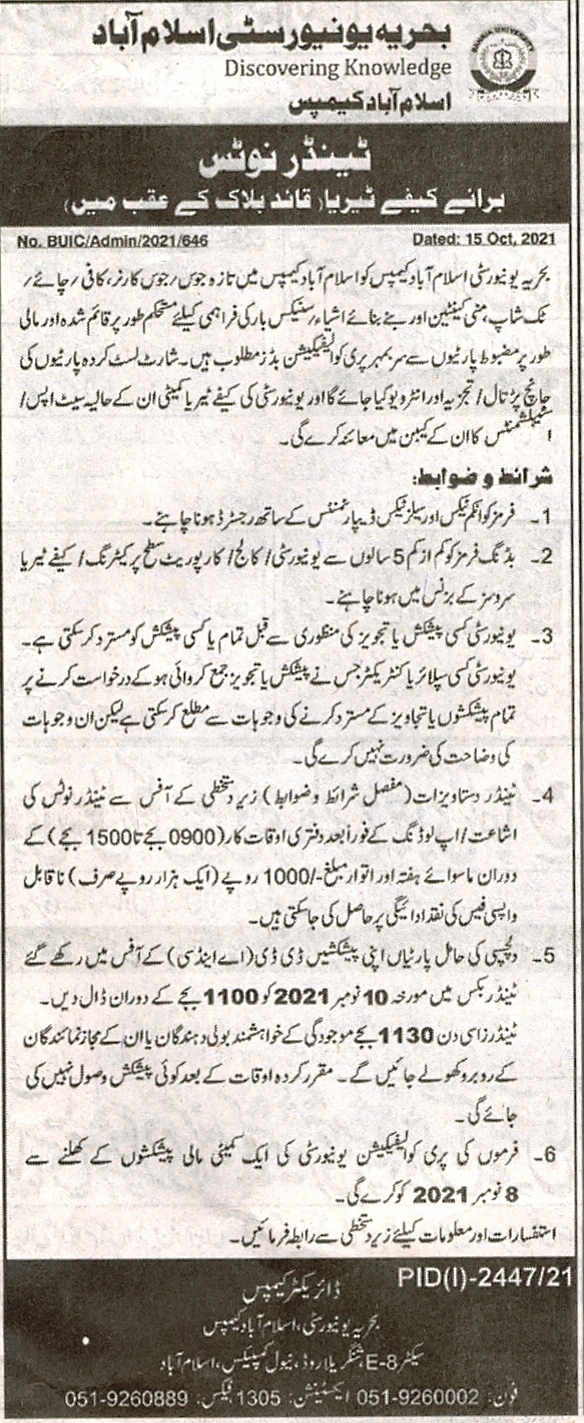 بحریہ یونیورسٹی اسلام آباد
BAHRIA UNIVERSITY
Discovering Knowledge
اسلام آباد کیمپس
ٹینڈر نوٹس
برائے کیفے ٹیریا (قائد بلاک کے عقب میں)
No. BUIC/Admin/2021/646 Dated: 15 Oct, 2021
بحریہ یونیورسٹی اسلام آباد کیمپس کو اسلام آباد کیمپس میں تازہ جوس/جوس کارنر، کافی/چائے/
ٹک شاپ، منی کینٹین اور بنے بنائے اشیاء/سنیکس بار کی فراہمی کیلئے مستحکم طور پر قائم شدہ اور مالی
طور پر مضبوط پارٹیوں سے سربمہر پری کوالیفیکیشن بڈز مطلوب ہیں۔ شارٹ لسٹ کردہ پارٹیوں کی
جانچ پڑتال/تجزیہ اور انٹرویو کیا جائے گا اور یونیورسٹی کی کیفے ٹیریا کمیٹی ان کے حالیہ سیٹ اپس/
اسٹیبلشمنٹس کا ان کے کیبن میں معائنہ کرے گی۔
شرائط و ضوابط:
1۔ فرمز کو انکم ٹیکس اور سیلز ٹیکس ڈیپارٹمنٹس کے ساتھ رجسٹرڈ ہونا چاہئے۔
2۔ بڈنگ فرمز کو کم از کم 5 سالوں سے یونیورسٹی/کالج/کارپوریٹ سطح پر کیٹرنگ/کیفے ٹیریا
سروسز کے بزنس میں ہونا چاہئے۔
3۔ یونیورسٹی کسی پیشکش یا تجویز کی منظوری سے قبل تمام یا کسی پیشکش کو مسترد کر سکتی ہے۔
یونیورسٹی کسی سپلائر یا کنٹریکٹر جس نے پیشکش یا تجویز جمع کروائی ہو کے درخواست کرنے پر
تمام پیشکشوں یا تجاویز کے مسترد کرنے کی وجوہات سے مطلع کر سکتی ہے لیکن ان وجوہات
کی وضاحت کی ضرورت نہیں کرے گی۔
4۔ ٹینڈر دستاویزات (مفصل شرائط و ضوابط) زیر دستخطی کے آفس سے ٹینڈر نوٹس کی
اشاعت/اپ لوڈنگ کے فوراً بعد دفتری اوقات کار (0900 بجے تا 1500 بجے) کے
دوران ماسوائے ہفتہ اور اتوار مبلغ -/1000 روپے (ایک ہزار روپے صرف) ناقابل
واپسی فیس کی نقد ادائیگی پر حاصل کی جا سکتی ہیں۔
5۔ دلچسپی کی حامل پارٹیاں اپنی پیشکشیں ڈی ڈی (اے اینڈ سی) کے آفس میں رکھے گئے
ٹینڈر بکس میں مورخہ 10 نومبر 2021 کو 1100 بجے کے دوران ڈال دیں۔
ٹینڈرز اسی دن 1130 بجے موجودگی کے خواہشمند بولی دہندگان یا ان کے مجاز نمائندگان
کے روبرو کھولے جائیں گے۔ مقرر کردہ اوقات کے بعد کوئی پیشکش وصول نہیں کی
جائے گی۔
6۔ فرموں کی پری کوالیفیکیشن یونیورسٹی کی ایک کمیٹی مالی پیشکشوں کے کھلنے سے
8 نومبر 2021 کو کرے گی۔
استفسارات اور معلومات کیلئے زیر دستخطی سے رابطہ فرمائیں۔
PID(I)-2447/21
ڈائریکٹر کیمپس
بحریہ یونیورسٹی، اسلام آباد کیمپس
سیکٹر E-8، شنگریلا روڈ، نیول کمپلیکس، اسلام آباد
فون: 051-9260002 ایکسٹینشن: 1305 فیکس: 051-9260889